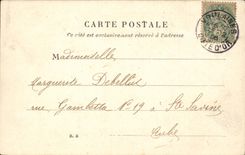 CARTE POSTALE
Ce côté est exclusivement réservé à l'adresse
Mademoiselle
Marguerite Debellut
rue Gambetta N° 19 à Ste Savine
Aube
CÔTE D'OR